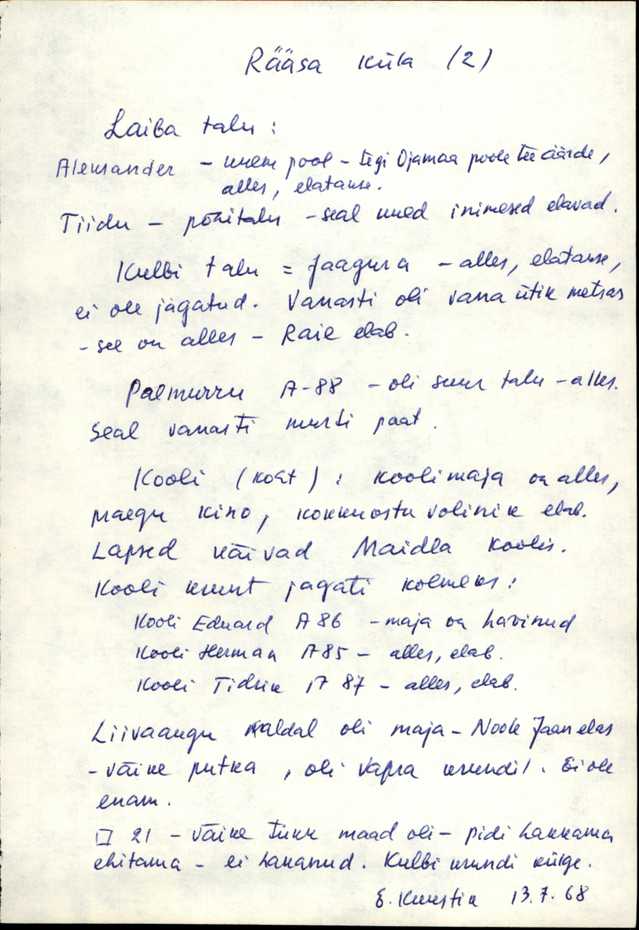 Rääsa küla (2)
Laiba talu :
Alexander – uuem pool – tegi Ojamaa poole tee äärde,
alles, elatakse.
Tiidu – põhitalu – seal uued inimesed elavad.
Kulbi talu = Jaagura – alles, elatakse,
ei ole jagatud. Vanasti oli vana ütik metsas
– see on alles – Raie elab.
Palmurru A-88 – oli suur talu – alles.
Seal vanasti murti paat.
Kooli (koht) : koolimaja on alles,
praegu kino, kokkuostu volinik elab.
Lapsed käivad Maidla koolis.
Kooli krunt jagati kolmeks :
Kooli Eduard A 86 – maja on hävinud
Kooli Herman A 85 – alles, elab.
Kooli Tidrik A 87 – alles, elab.
Liivaaugu kaldal oli maja – Noole Jaan elas
– väike putka, oli Vapra krundil. Ei ole
enam.
21 – väike tükk maad oli – pidi hakkama
ehitama – ei hakanud. Kulbi krundi külge.
13.7.68